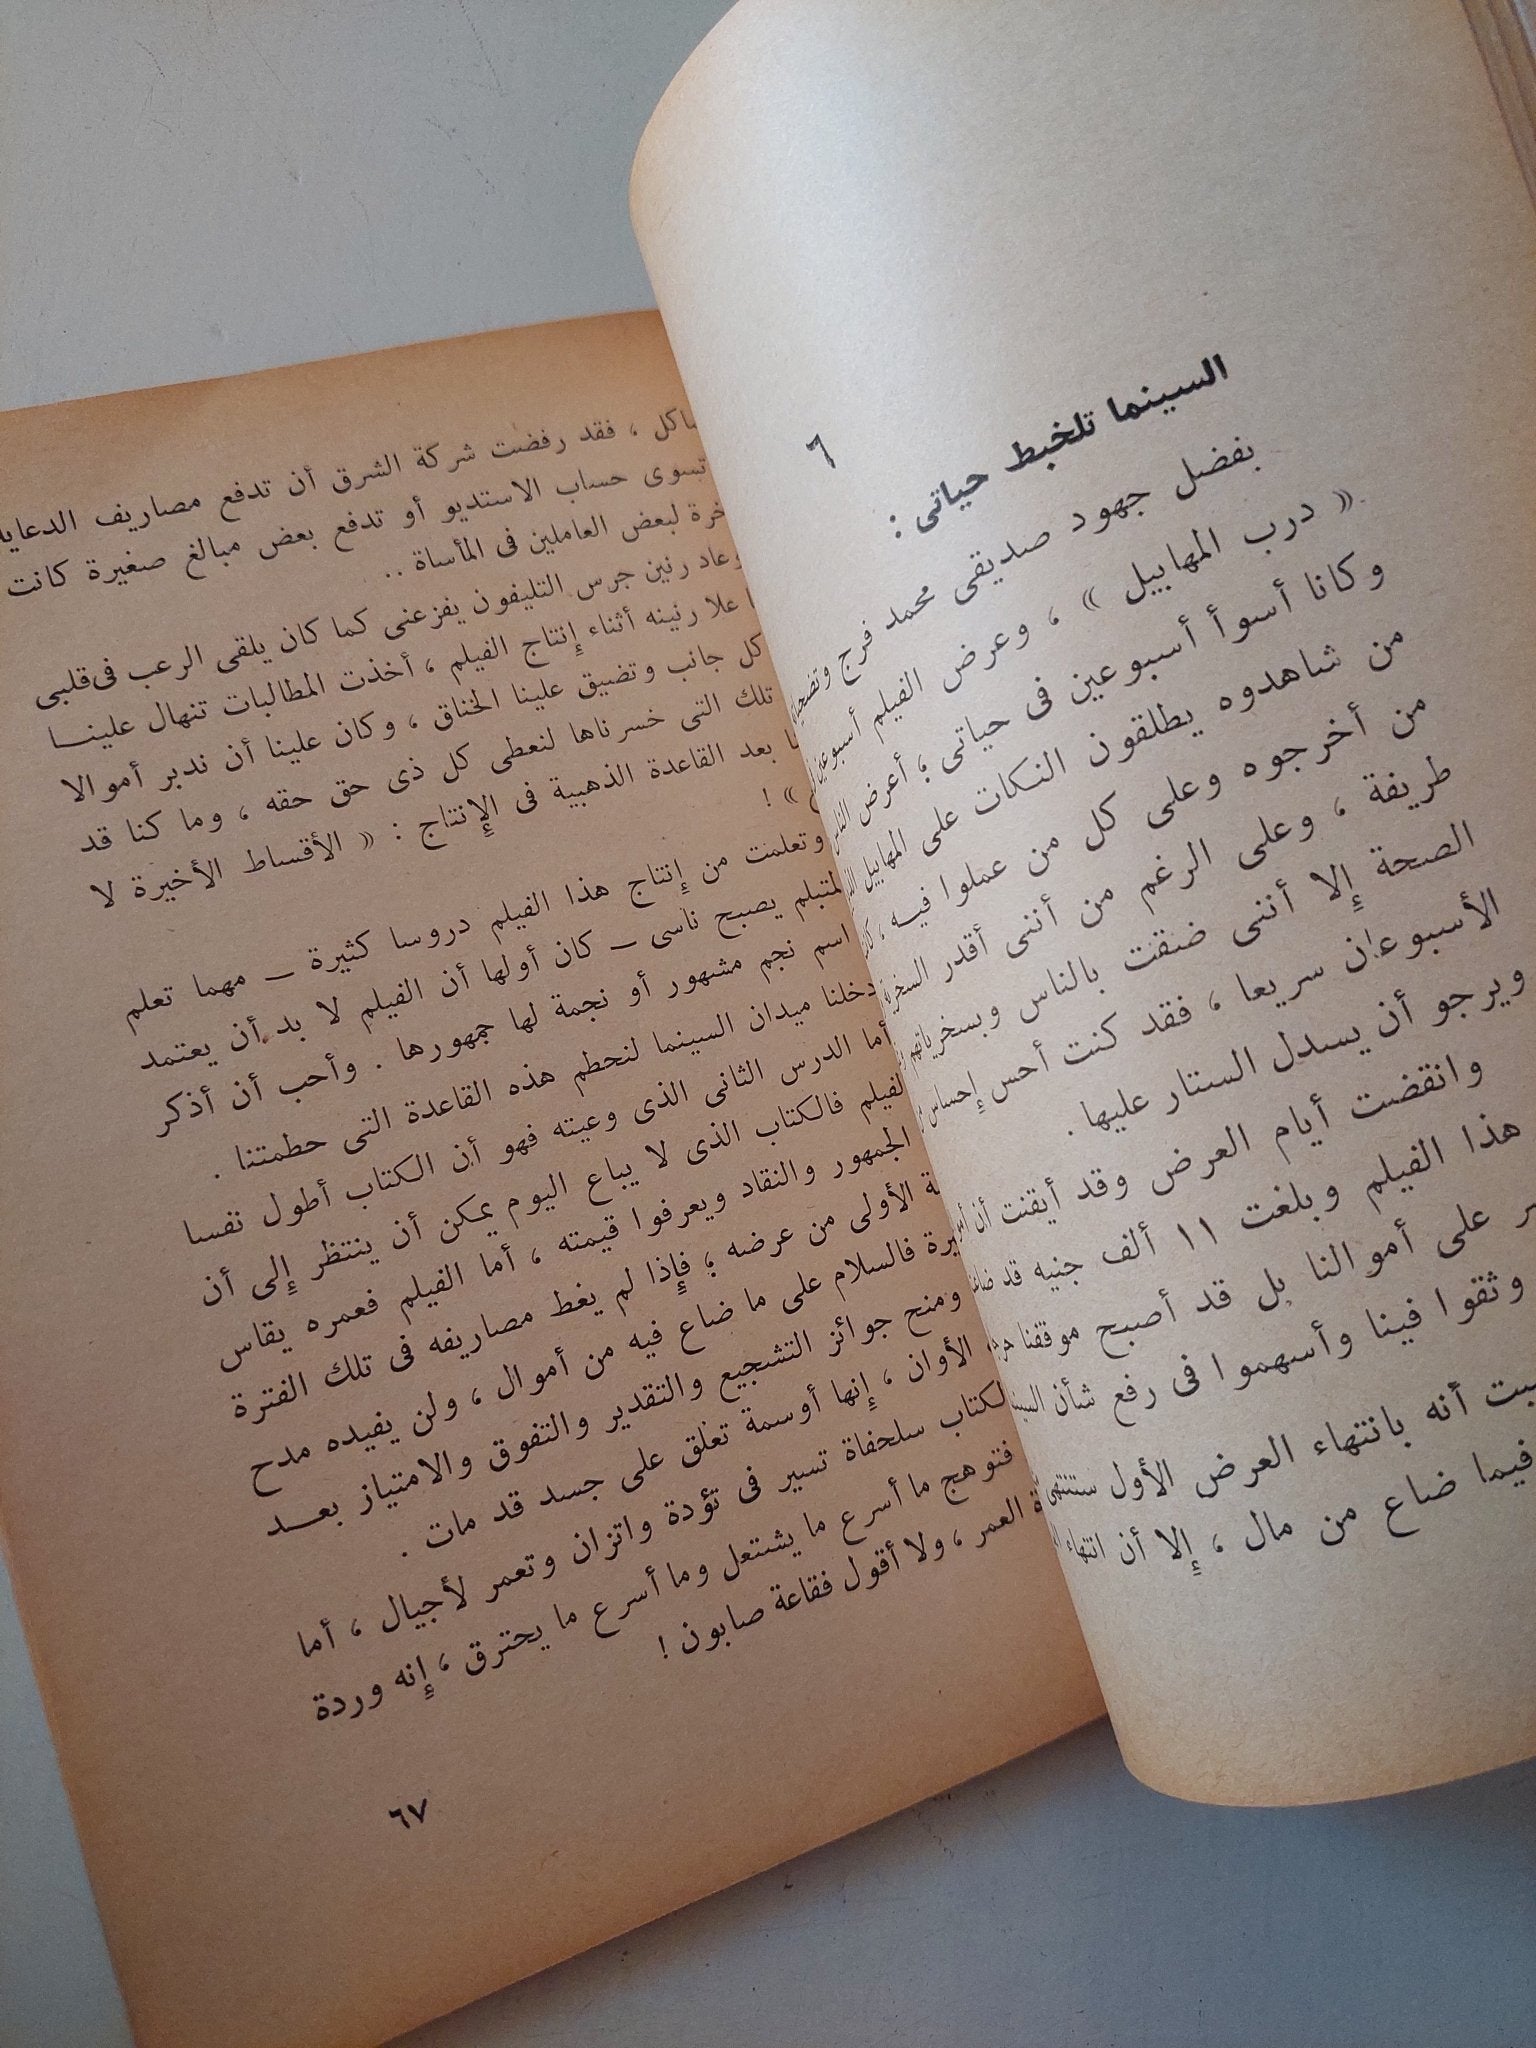 ٦
السينما تلخبط حياتى :
بفضل جهود صديقى محمد فرج
« درب المهابيل » ، وعرض الفيلم
وكانا أسوأ أسبوعين فى حياتى ؛ أعرض
من شاهدوه يطلقون النكات على المهابيل
من أخرجوه وعلى كل من عملوا فيه ،
طريفة ، وعلى الرغم من أننى أقدر
الصحة إلا أننى ضقت بالناس وبسخرياتهم
الأسبوعان سريعا ، فقد كنت أحس إحساس
ويرجو أن يسدل الستار عليها .
وانقضت أيام العرض وقد أيقنت أن
هذا الفيلم وبلغت ١١ ألف جنيه قد
على أموالنا بل قد أصبح موقفنا
وثقوا فينا وأسهموا فى رفع شأن
أنه بانتهاء العرض الأول ستنتهى
فيما ضاع من مال ، إلا أن انتهاء
، فقد رفضت شركة الشرق أن تدفع مصاريف الدعاية
تسوى حساب الاستديو أو تدفع بعض مبالغ صغيرة كانت
لبعض العاملين فى المأساة ..
وعاد رنين جرس التليفون يفزعنى كما كان يلقى الرعب فى قلبى
علا رنينه أثناء إنتاج الفيلم ، أخذت المطالبات تنهال علينــا
كل جانب وتضيق علينا الخناق ، وكان علينا أن ندبر أموالا
تلك التى خسرناها لنعطى كل ذى حق حقه ، وما كنا قد
بعد القاعدة الذهبية فى الإنتاج : « الأقساط الأخيرة لا
» !
وتعلمت من إنتاج هذا الفيلم دروسا كثيرة – مهما تعلم
المتبلم يصبح ناسى – كان أولها أن الفيلم لا بد أن يعتمد
اسم نجم مشهور أو نجمة لها جمهورها . وأحب أن أذكر
دخلنا ميدان السينما لنحطم هذه القاعدة التى حطمتنا .
أما الدرس الثانى الذى وعيته فهو أن الكتاب أطول نفسا
الفيلم فالكتاب الذى لا يباع اليوم يمكن أن ينتظر إلى أن
الجمهور والنقاد ويعرفوا قيمته ، أما الفيلم فعمره يقاس
الأولى من عرضه ؛ فإذا لم يغط مصاريفه فى تلك الفترة
فالسلام على ما ضاع فيه من أموال ، ولن يفيده مدح
ومنح جوائز التشجيع والتقدير والتفوق والامتياز بعــد
الأوان ، إنها أوسمة تعلق على جسد قد مات .
الكتاب سلحفاة تسير فى تؤدة واتزان وتعمر لأجيال ، أما
فتوهج ما أسرع ما يشتعل وما أسرع ما يحترق ، إنه وردة
العمر ، ولا أقول فقاعة صابون !
٦٧